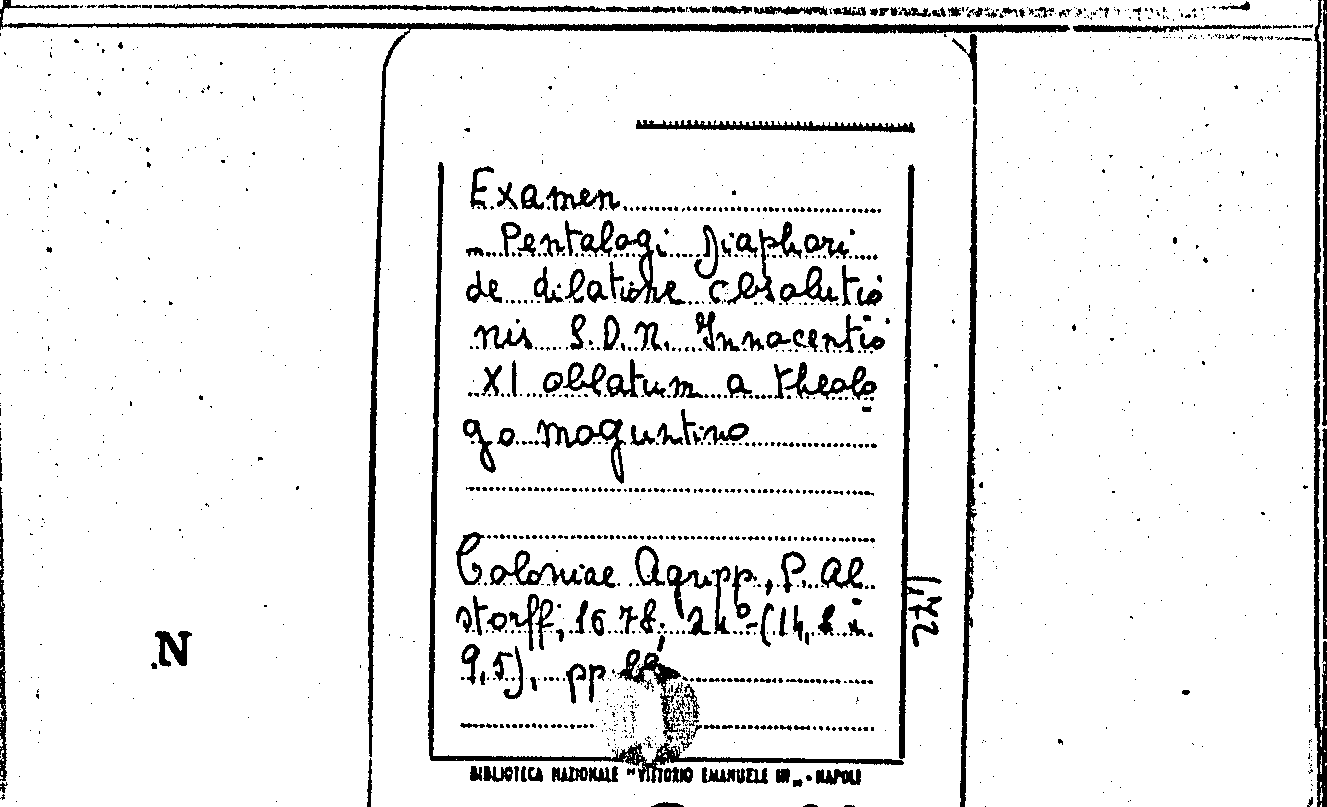 Examen
- Pentalogi Diaphori
de dilatione absolutio
nis S.D.N. Innocentio
XI oblatum a theolo
go moguntino
Coloniae Agripp., P. Al
storff, 1678. 24°-(14,2 x
9,5), pp.
1,172
N
BIBLIOTECA NAZIONALE "VITTORIO EMANUELE III„ - NAPOLI